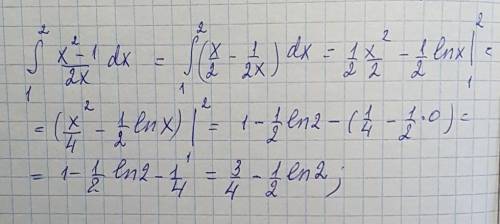 ∫₁² (x²-1)/(2x) dx = ∫₁² (x/2 - 1/(2x)) dx = 1/2 x²/2 - 1/2 lnx |₁² =
= (x²/4 - 1/2 lnx) |₁² = 1 - 1/2 ln2 - (1/4 - 1/2·0) =
= 1 - 1/2 ln2 - 1/4 = 3/4 - 1/2 ln2;